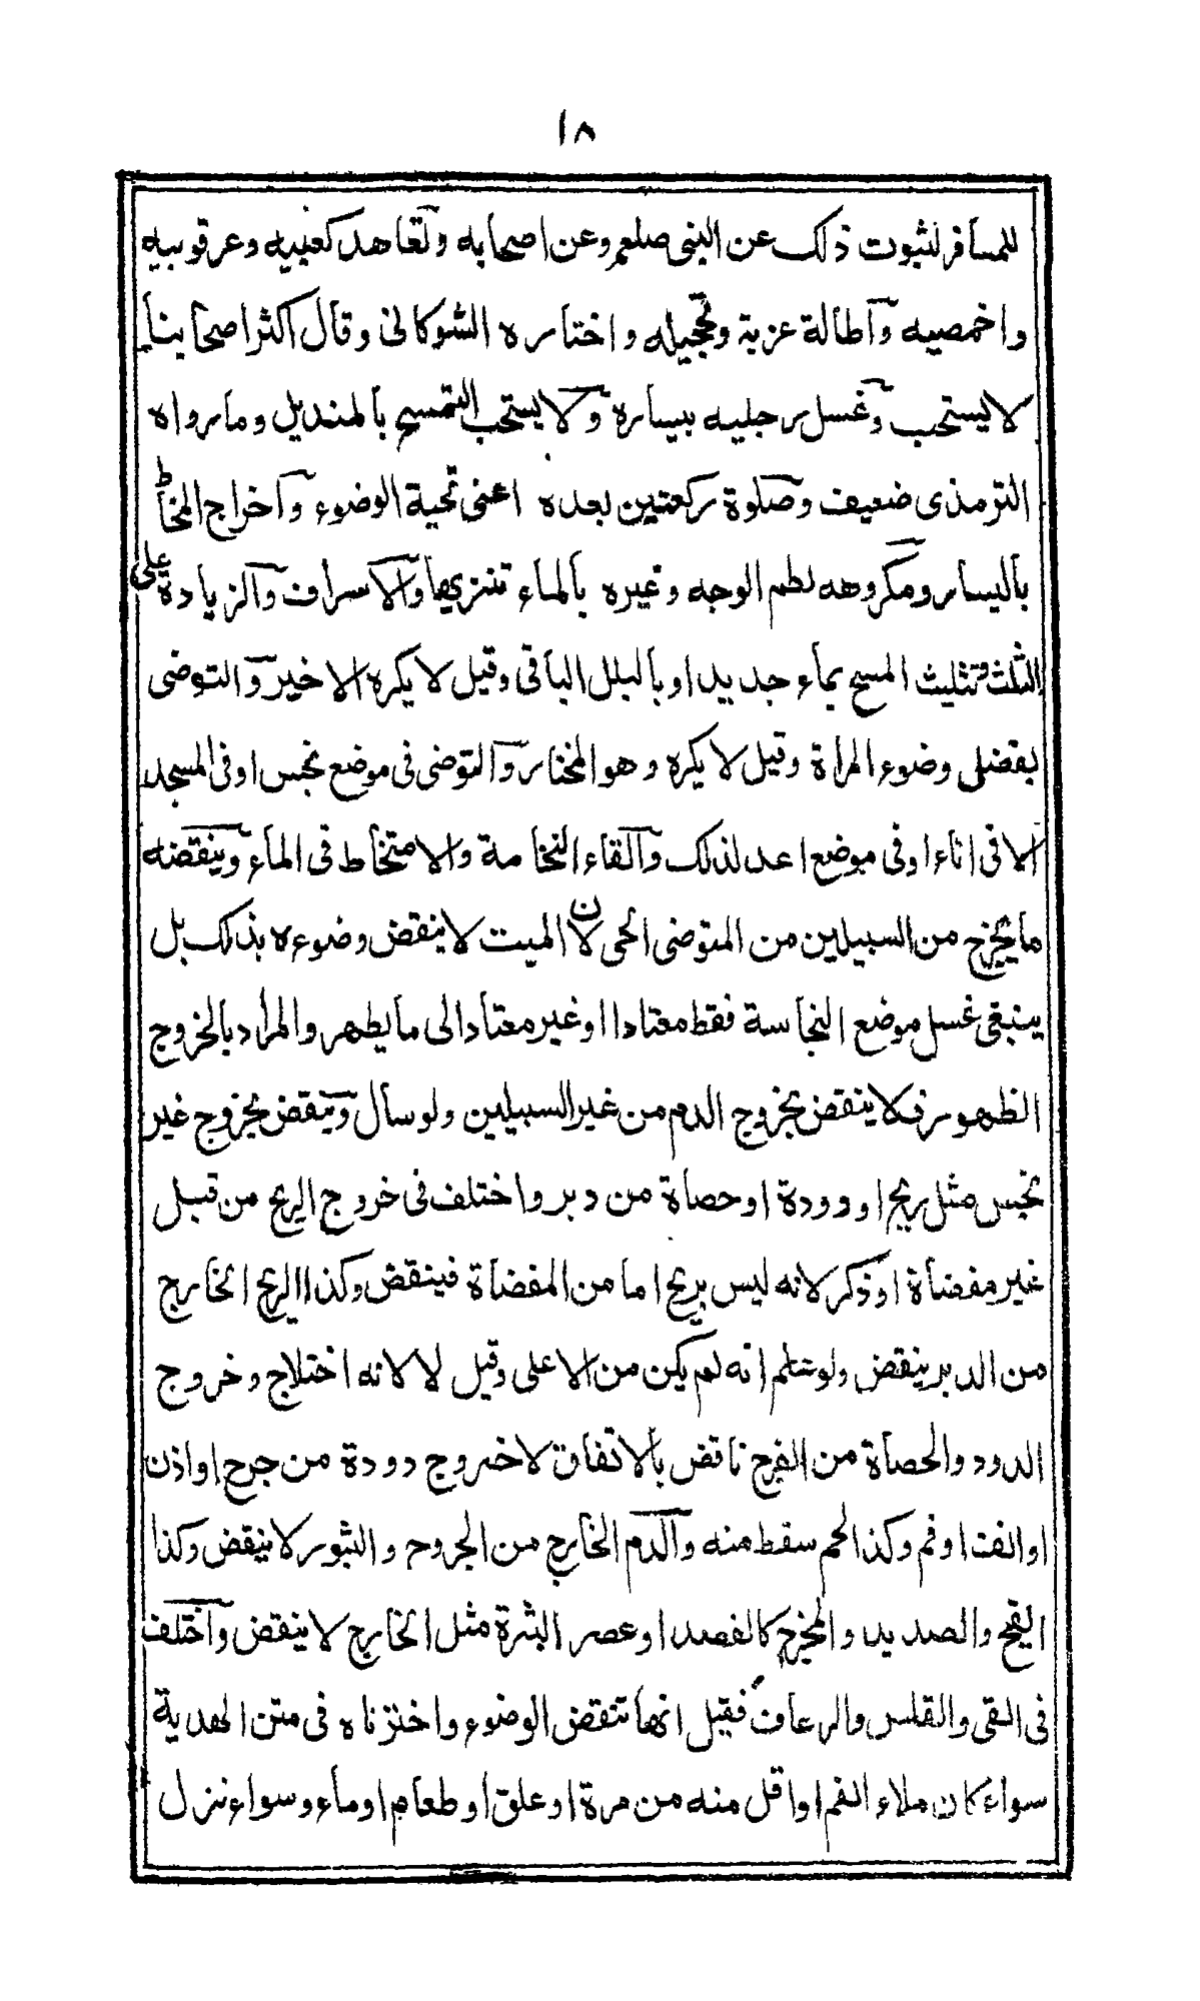 ١٨
للمسافر لثبوت ذلك عن النبى صلعم وعن اصحابه وتعاهد كعبيه وعرقوبيه
واخمصيه وآطالة غرته وتحجيله واختاره الشوكانى وقال اكثر اصحابنا
لا يستحب وغسل رجليه بيساره ولا يستحب التمسح بالمنديل وما رواه
الترمذى ضعيف وصلوة ركعتين بعده اعنى تحية الوضوء وآخراج المخاط
باليسار ومكروهه لطم الوجه وغيره بالماء تنزيها والاسراف وآلزيادة على
الثلث وتثليث المسح بماء جديد او بالبلل الباقى وقيل لا يكره الاخير والتوضى
بفضل وضوء المرأة وقيل لا يكره وهو المختار والتوضى فى موضع نجس او فى المسجد
الا فى اناء او فى موضع اعد لذلك وآلقاء النخامة والامتخاط فى الماء وينقضه
ما يخرج من السبيلين من المتوضى الحى لان الميت لا ينقض وضوءه بذلك بل
ينبغى غسل موضع النجاسة فقط معتادا او غير معتاد الى ما يطهر والمراد بالخروج
الظهور فلا ينقض بخروج الدم من غير السبيلين ولو سال وينقض بخروج غير
نجس مثل ريح او دودة او حصاة من دبر واختلف فى خروج الريح من قبل
غير مفضاة او ذكر لانه ليس بريح اما من المفضاة فينقض وكذا الريح الخارج
من الدبر ينقض ولو علم انه لم يكن من الاعلى وقيل لا لانه اختلاج وخروج
الدود والحصاة من الفرج ناقض بالاتفاق لا خروج دودة من جرح او اذن
او انف او فم وكذا لحم سقط منه وآلدم الخارج من الجروح والبثور لا ينقض وكذا
القيح والصديد والمخرج كالفصد او عصر البثرة مثل الخارج لا ينقض وآختلف
فى القى والقلس والرعاف فقيل انها تنقض الوضوء واخترناه فى متن الهدية
سواء كان ملاء الفم او اقل منه من مرة او علق او طعام او ماء وسواء نزل